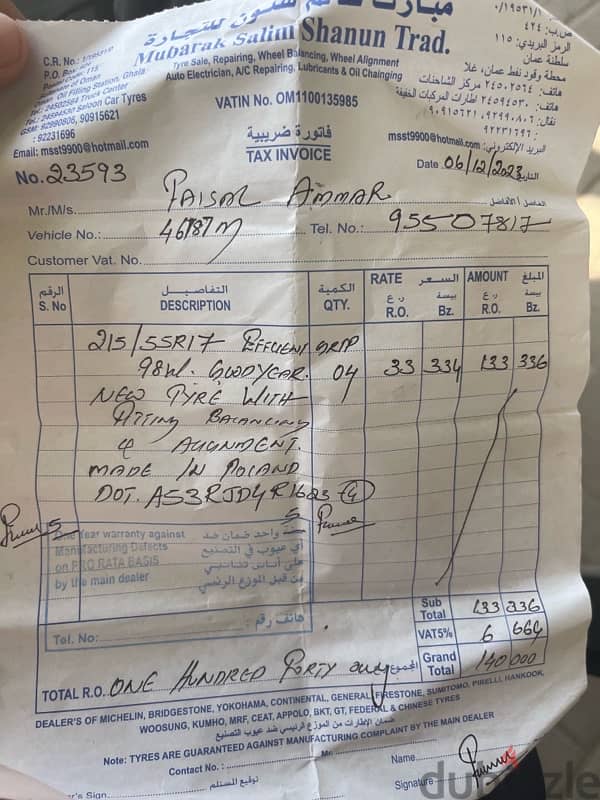 مبارك سالم شنون للتجارة
Mubarak Salim Shanun Trad.
Tyre Sale, Repairing, Wheel Balancing, Wheel Alignment
Auto Electrician, A/C Repairing, Lubricants & Oil Chainging
C.R. No.:
P.O. Box:
Postal Code: 115
Sultanate of Oman
Oman Oil Filling Station, Ghala
Tel: 24502564 Truck Center
Tel: 24594530 Saloon Car Tyres
GSM: 92990806, 90915621
: 92231696
Email: msst9900@hotmail.com
ص.ب: ٤٢٤
الرمز البريدي: ١١٥
سلطنة عمان
محطة وقود نفط عمان، غلا
هاتف: ٢٤٥٠٢٥٦٤ مركز الشاحنات
هاتف: ٢٤٥٩٤٥٣٠ اطارات المركبات الخفيفة
نقال: ٩٢٩٩٠٨٠٦، ٩٠٩١٥٦٢١
٩٢٢٣١٦٩٦ :
msst9900@hotmail.com البريد الإلكتروني:
VATIN No. OM1100135985
فاتورة ضريبية
TAX INVOICE
No. 23593
Date 06/12/2023 التاريخ
Mr./M/s. FAISAL AMMAR الفاضل/الأفاضل
Vehicle No.: 46787 M Tel. No.: 95507817
Customer Vat. No.
الرقم التفاصيل الكمية RATE السعر AMOUNT المبلغ
S. No DESCRIPTION QTY. ر.ع R.O. بيسة Bz. ر.ع R.O. بيسة Bz.
215/55R17 EFFUENI GRIP
98W. GOODYEAR. 04 33 334 133 336
NEW TYRE WITH
FITTING BALANCING
& ALIGNMENT.
MADE IN POLAND
DOT. A53RJD4R1623
5 5
One Year warranty against
Manufacturing Defects
on PRO RATA BASIS
by the main dealer
واحد ضمان ضد
أي عيوب في التصنيع
على أساس تناسبي
من قبل الموزع الرئيسي
Tel. No: هاتف رقم :
Sub Total 133 336
VAT5% 6 664
Grand Total 140 000
TOTAL R.O. ONE HUNDRED FORTY only المجموع
DEALER'S OF MICHELIN, BRIDGESTONE, YOKOHAMA, CONTINENTAL, GENERAL, FIRESTONE, SUMITOMO, PIRELLI, HANKOOK,
WOOSUNG, KUMHO, MRF, CEAT, APPOLO, BKT, GT, FEDERAL & CHINESE TYRES
ضمان الإطارات من الموزع الرئيسي ضد عيوب التصنيع
Note: TYRES ARE GUARANTEED AGAINST MANUFACTURING COMPLAINT BY THE MAIN DEALER
Contact No. : Name
توقيع المستلم Signature
's Sign.
dubizzle